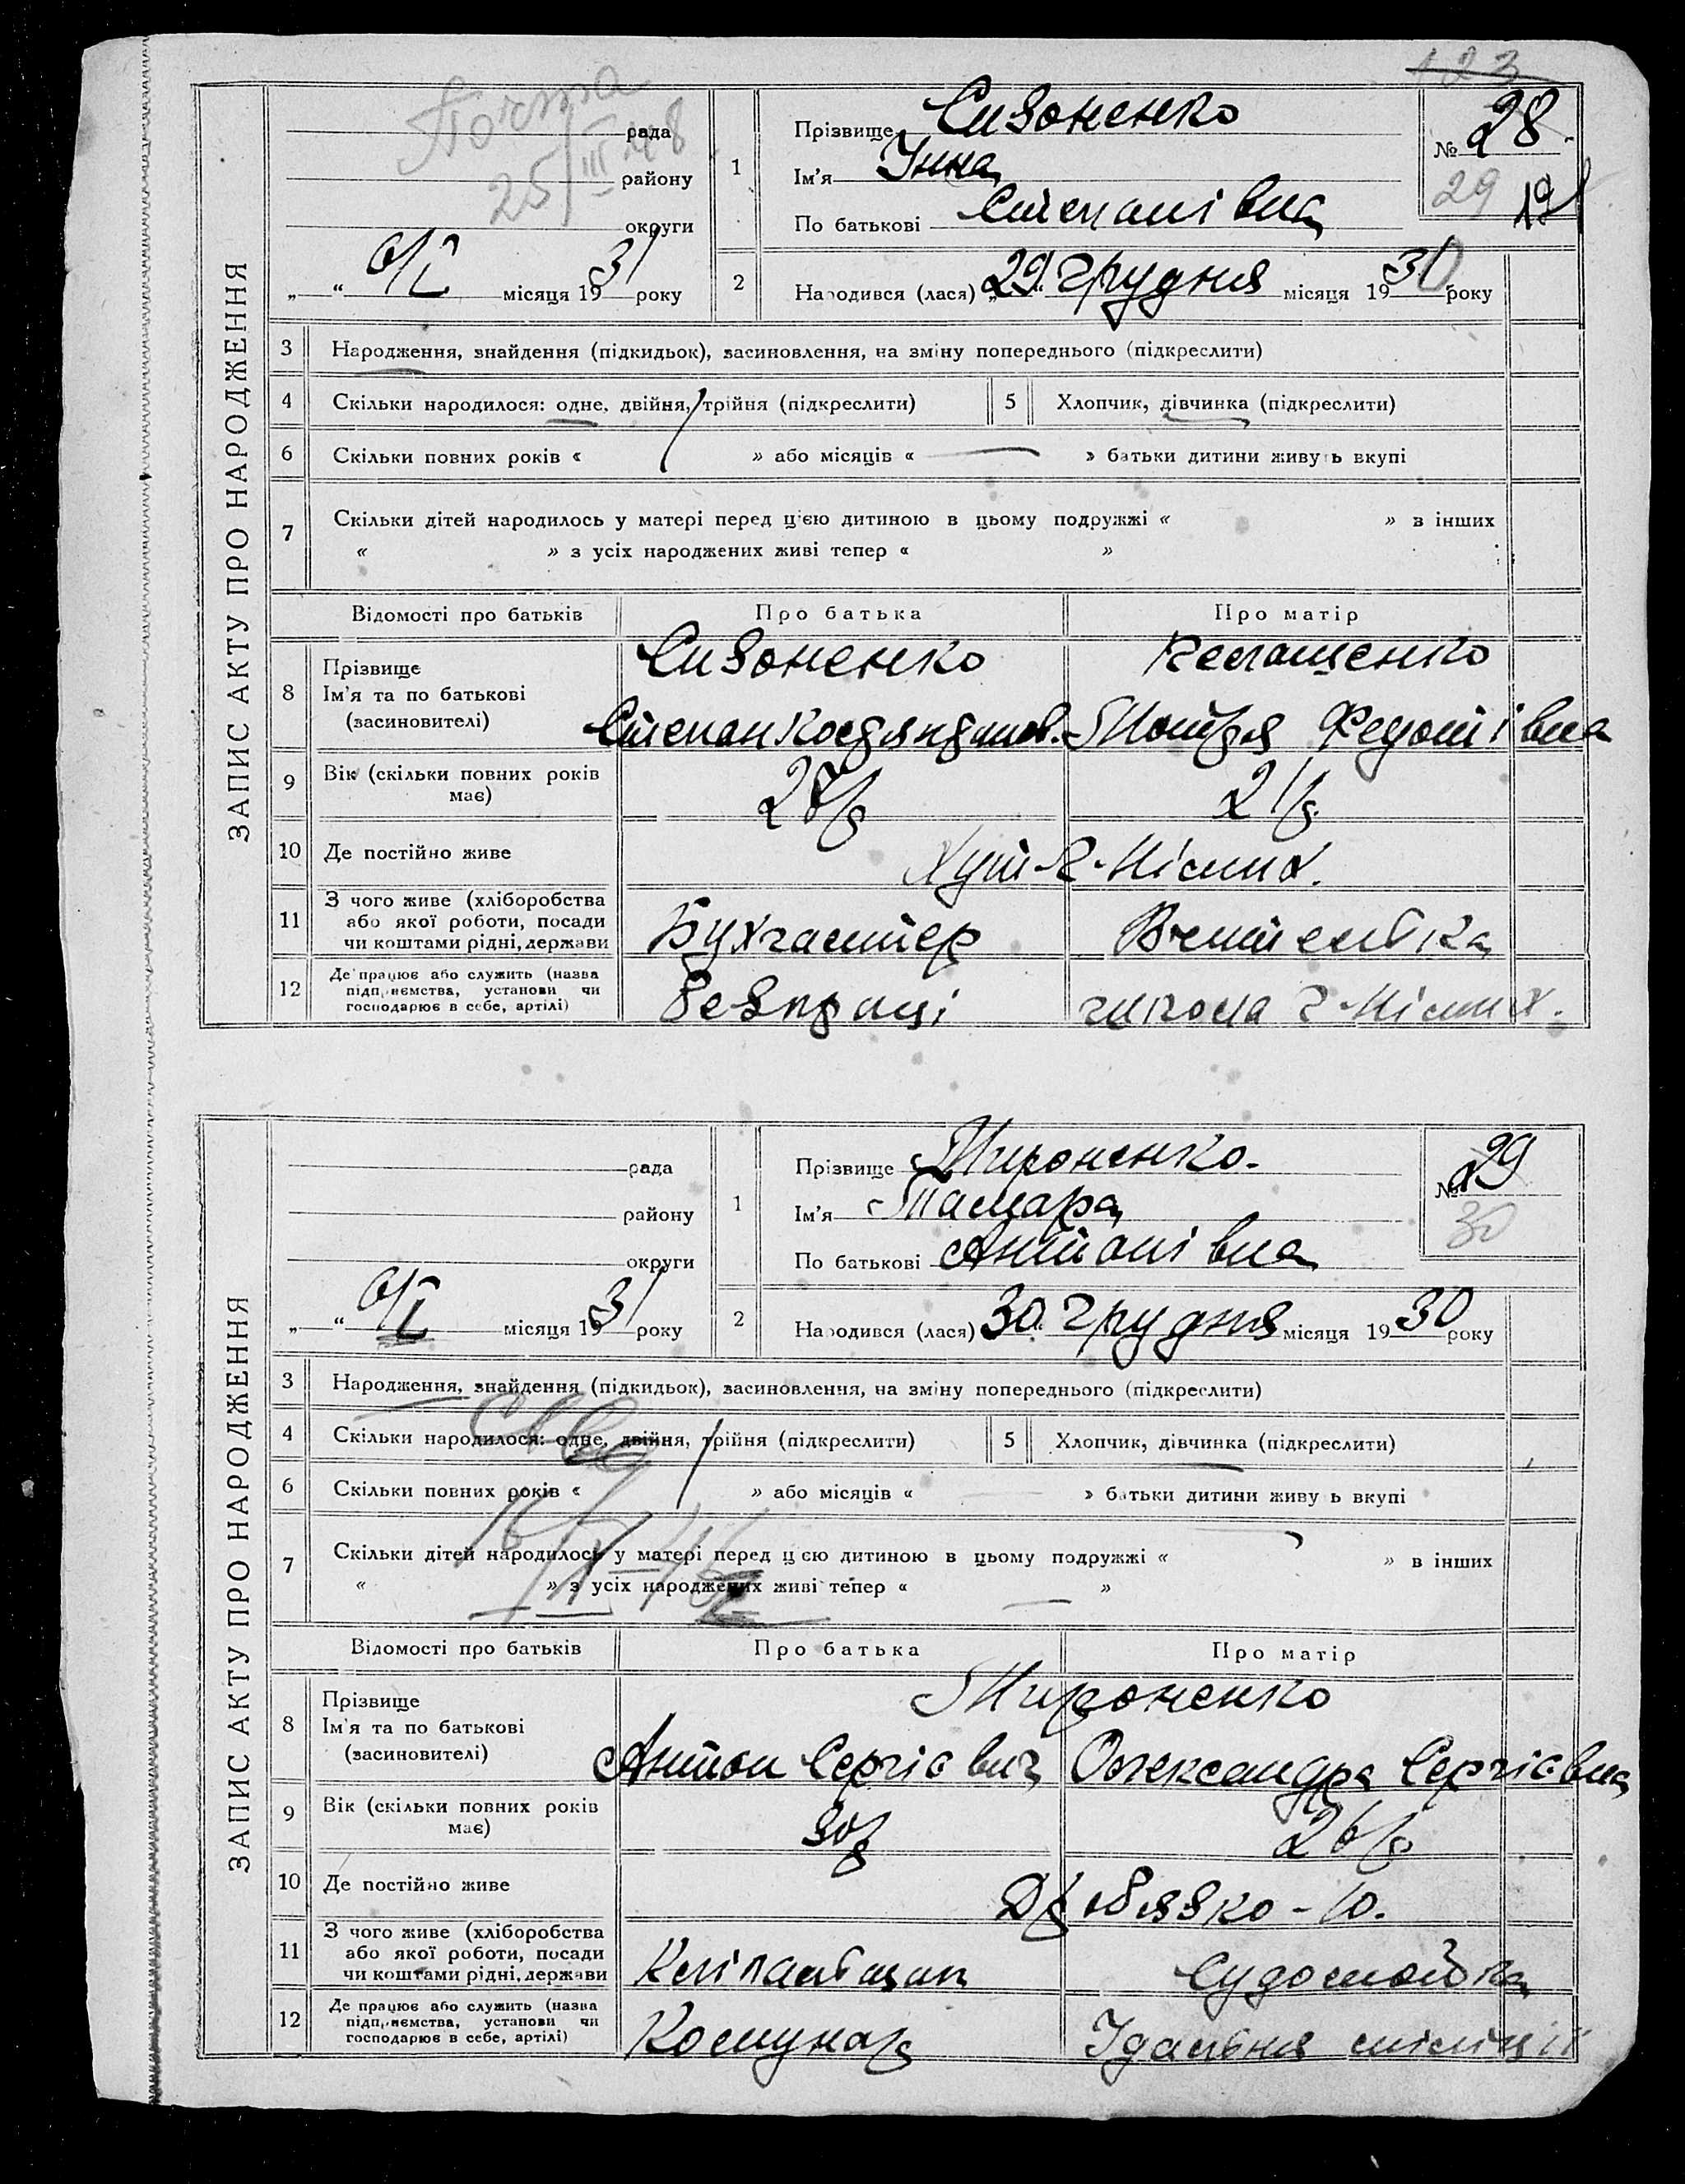 123
ЗАПИС АКТУ ПРО НАРОДЖЕННЯ
Почта
25/III 48
рада
району
округи
„ “ 6/I місяця 1931 року
1
Прізвище Сизоненко
Ім'я Інна
По батькові Степанівна
№ 28.
29 19
2
Народився (лася) „29. грудня місяця 1930 року
3 Народження, знайдення (підкидьок), засиновлення, на зміну попереднього (підкреслити)
4 Скільки народилося: одне, двійня, трійня (підкреслити) 5 Хлопчик, дівчинка (підкреслити)
6 Скільки повних років « » або місяців « — » батьки дитини живуть вкупі
7 Скільки дітей народилось у матері перед цією дитиною в цьому подружжі « » в інших
« » з усіх народжених живі тепер « »
Відомості про батьків Про батька Про матір
8 Прізвище
Ім'я та по батькові
(засиновителі)
Сизоненко
Степан Костянтинов.
Мотря Федотівна
9 Вік (скільки повних років має)
21/р.
10 Де постійно живе
11 З чого живе (хліборобства
або якої роботи, посади
чи коштами рідні, держави
Бухгалтер Вчителька
12 Де працює або служить (назва
підприємства, установи чи
господарює в себе, артілі)
Безпраці школа
ЗАПИС АКТУ ПРО НАРОДЖЕННЯ
рада
району
округи
„ “ 6/I місяця 1931 року
1
Прізвище Мироненко.
Ім'я Тамара
По батькові Антонівна
№ 29
30
2
Народився (лася) 30. грудня місяця 1930 року
3 Народження, знайдення (підкидьок), засиновлення, на зміну попереднього (підкреслити)
4 Скільки народилося: одне, двійня, трійня (підкреслити) 5 Хлопчик, дівчинка (підкреслити)
6 Скільки повних років « » або місяців « » батьки дитини живу ь вкупі
7 Скільки дітей народилось у матері перед цєю дитиною в цьому подружжі « » в інших
« » з усіх народжених живі тепер « »
Відомості про батьків Про батька Про матір
8 Прізвище
Ім'я та по батькові
(засиновителі)
Мироненко
Антон Сергієвич Олександра Сергієвна
9 Вік (скільки повних років має)
30/р 26/р
10 Де постійно живе
Дроб'язко - 10.
11 З чого живе (хліборобства
або якої роботи, посади
чи коштами рідні, держави
Судомойка
12 Де працює або служить (назва
підприємства, установи чи
господарює в себе, артілі)
Комунар Їдальня міліції